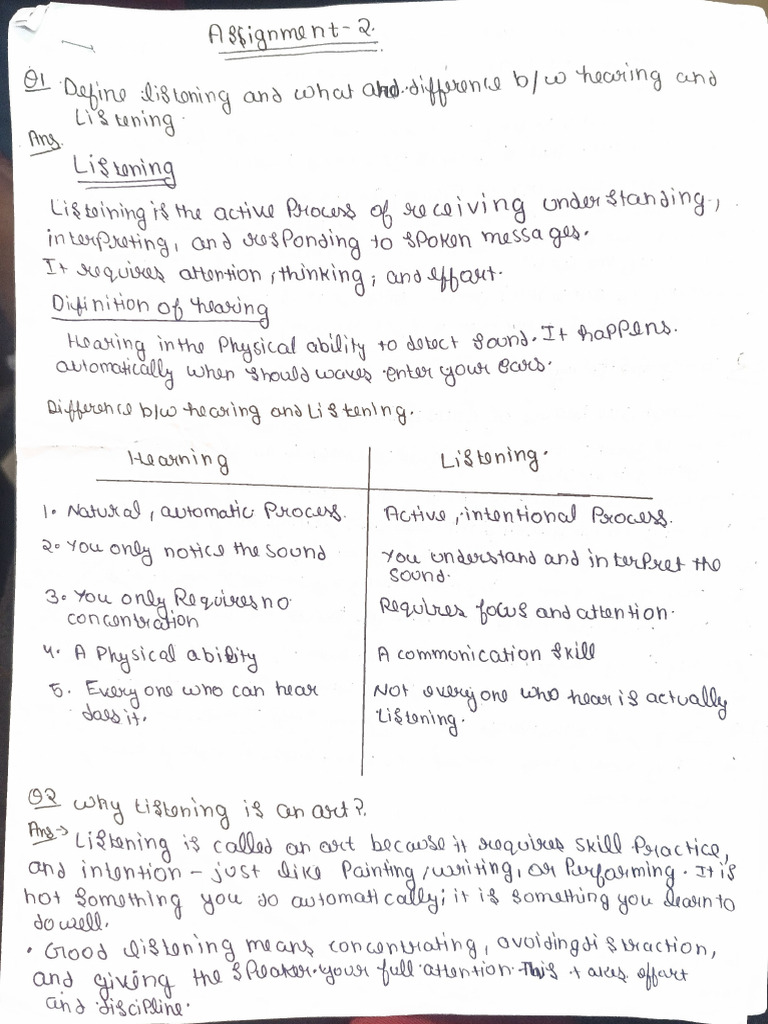 Assignment-2.
Q1 Define listening and what and difference b/w hearing and
Listening.
Ans.
Listening
Listeining is the active Process of receiving understanding,
interpreting, and responding to spoken messages.
It requires attention, thinking, and effart.
Difinition of hearing
Hearing in the Physical ability to detect sound. It happens.
automatically when should waves enter your ears.
Difference b/w hearing and Listening.
Hearning Listening.
1. Natural, automatic Process. Active, intentional Process.
2. You only notice the sound You understand and interpret the
sound.
3. You only Requires no Requires focus and attention.
concentration
4. A Physical ability A communication skill
5. Every one who can hear Not everyone who hear is actually
does it. Listening.
Q2 Why Listening is an art?.
Ans → Listening is called an art because it requires skill Practice,
and intention - just like Painting, writing, or Purforming. It is
not something you do automatically; it is something you learn to
do well.
• Good listening means concentrating, avoiding distraction,
and giving the speaker your full attention. This takes effart
and discipline.